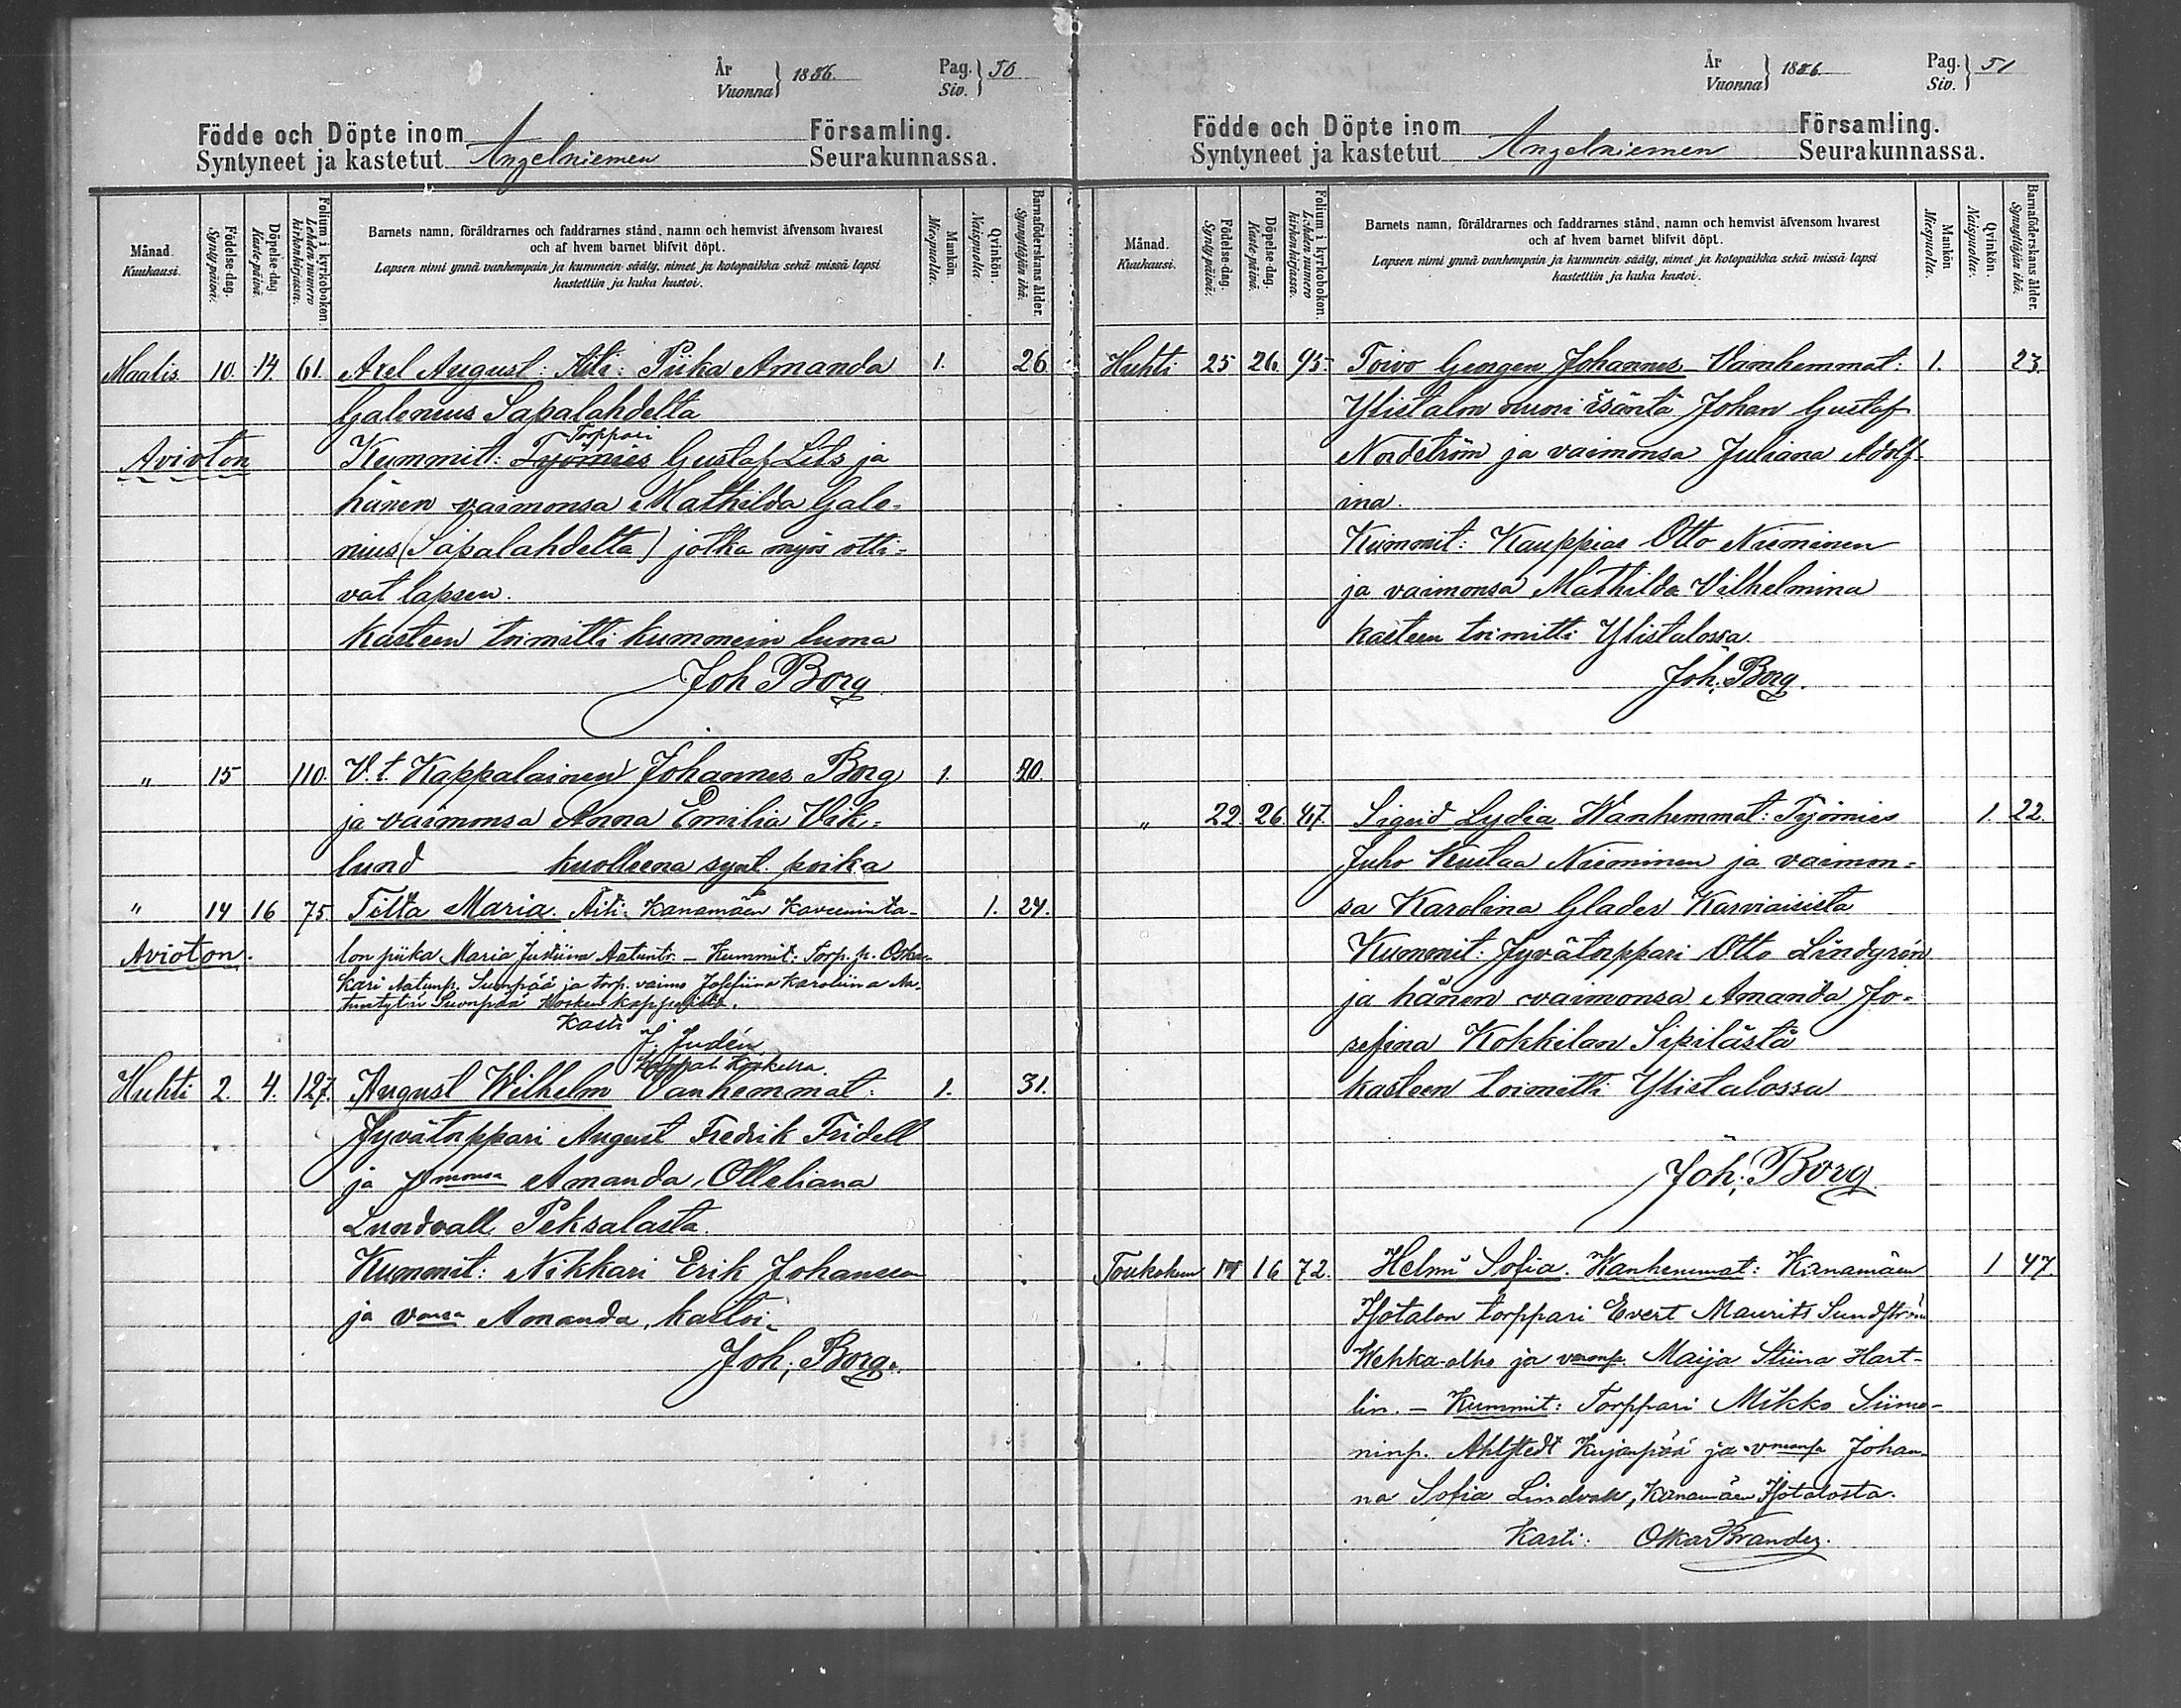 År
Vuonna } 1886. Pag.
Siv. } 50
Födde och Döpte inom Församling.
Syntyneet ja kastetut Angelniemen Seurakunnassa.
Månad.
Kuukausi.
Födelse-dag.
Synty-päivä.
Döpelse-dag.
Kaste-päivä.
Folium i kyrkoboken.
Lehden numero kirkonkirjassa.
Barnets namn, föräldrarnes och faddrarnes stånd, namn och hemvist äfvensom hvarest
och af hvem barnet blifvit döpt.
Lapsen nimi ynnä vanhempain ja kummein sääty, nimet ja kotopaikka sekä missä lapsi
kastettiin ja kuka kastoi.
Mankön.
Miespuolia.
Qvinkön.
Naispuolia.
Barnaföderskans ålder.
Synnyttäjän ikä.
Maalis. 10. 14. 61. Axel August: Äiti: Piika Amanda 1. 26
Galenius Sapalahdelta
Torppari
Avioton Kummit: Työmies Gustaf Lils ja
hänen vaimonsa Mathilda Gale-
nius (Sapalahdelta) jotka myös otti-
vat lapsen.
Kasteen toimitti kummein luona
Joh Borg
" 15 110. V. t. Kappalainen Johannes Borg 1.
ja vaimonsa Anna Emilia Vik-
lund kuolleena synt. poika
" 14 16 75 Tilta Maria. Äiti: Kanamäen Kaveninta- 1. 24.
Avioton. lon piika Maria Justiina Aatuntr. – Kummit: Torp. p. Oska-
Kari Aatunp. Suonpää ja torp. vaimo Josefiina Karoliina Aa-
tuntytär Suonpää Kosken kappelista.
Kasti
J. Judén
Kappal. Koskessa.
Huhti 2. 4. 127. August Wilhelm Vanhemmat: 1. 31.
Jyvätorppari August Fredrik Fridell
ja monsa Amanda Olleliana
Lundvall Peksalasta.
Kummit: Nikkari Erik Johansson
ja vonsa Amanda, kastoi
Joh; Borg.
År
Vuonna } 1886 Pag.
Siv. } 51
Födde och Döpte inom Församling.
Syntyneet ja kastetut Angelniemen Seurakunnassa.
Månad.
Kuukausi.
Födelse-dag.
Synty-päivä.
Döpelse-dag.
Kaste-päivä.
Folium i kyrkoboken.
Lehden numero kirkonkirjassa.
Barnets namn, föräldrarnes och faddrarnes stånd, namn och hemvist äfvensom hvarest
och af hvem barnet blifvit döpt.
Lapsen nimi ynnä vanhempain ja kummein sääty, nimet ja kotopaikka sekä missä lapsi
kastettiin ja kuka kastoi.
Mankön
Miespuolia.
Qvinkön.
Naispuolia.
Barnaföderskans ålder.
Synnyttäjän ikä.
Huhti 25 26. 95. Toivo Georgen Johannes Vanhemmat: 1. 23.
Ylistalon nuori isäntä Johan Gustaf
Nordström ja vaimonsa Juliana Adolf-
ina.
Kummit: Kauppias Otto Nieminen
ja vaimonsa Mathilda Vilhelmina
kasteen toimitti Ylistalossa.
Joh; Borg.
" 22. 26. 47. Sigrid Lydia Wanhemmat: Työmies 1. 22.
Juho Kustaa Nieminen ja vaimon-
sa Karolina Glader Karviaisista
Kummit: Jyvätorppari Otto Lindgrén
ja hänen vaimonsa Amanda Jo-
sefina Kokkilan Sipilästä
kasteen toimitti Ylistalossa
Joh; Borg
Toukokuu 16 72. Helmi Sofia. Wanhemmat: Kanamäen 1 47.
Isotalon torppari Evert Maurits Sundström
Wehka-alho ja Maija Stiina Hart-
lin. – Kummit: Torppari Mikko Siimo-
ninp. Ahlstedt Kujanpää ja Johan-
na Sofia Lindvall, Kanamäen Isotalosta.
Kasti: Oskar Brander.